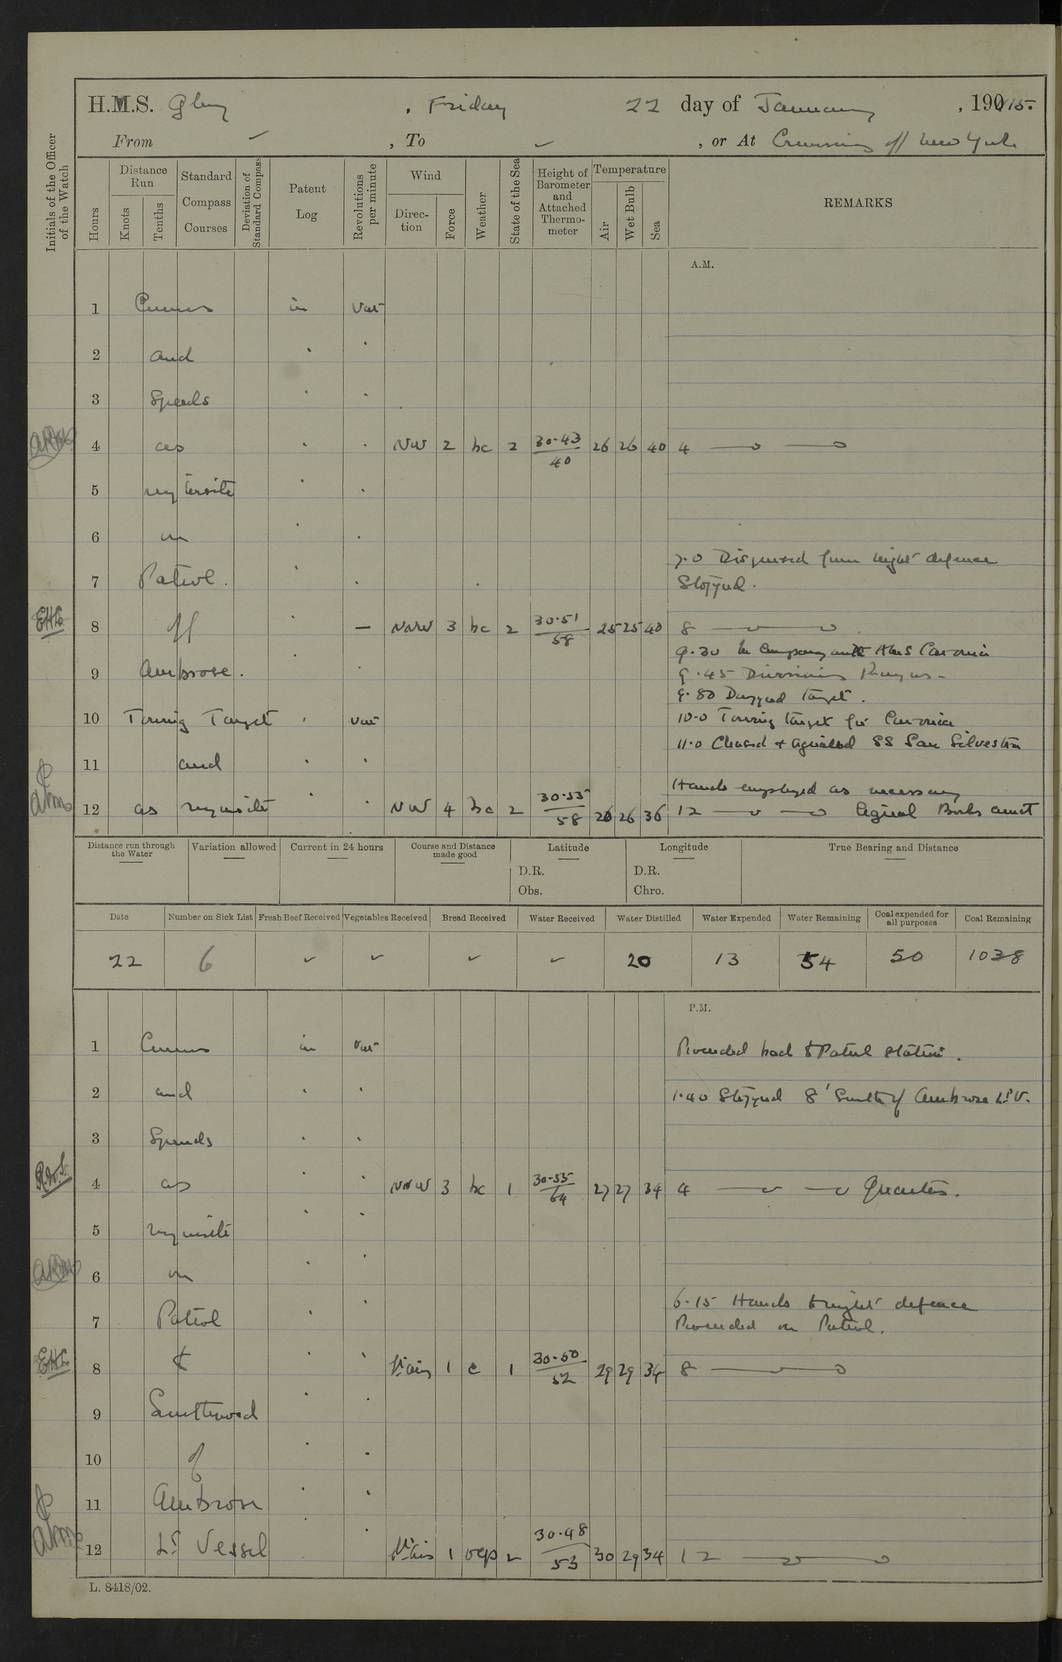 H.M.S. Glory, Friday 22 day of January, 1915.
From —, To —, or At Cruising off New York
Initials of the Officer of the Watch
Hours
Distance Run
Knots
Tenths
Standard Compass Courses
Deviation of Standard Compass
Patent Log
Revolutions per minute
Wind
Direction
Force
Weather
State of the Sea
Height of Barometer and Attached Thermometer
Temperature
Air
Wet Bulb
Sea
REMARKS
A.M.
1 Courses in Var
2 and
3 Speeds
4 as NW 2 bc 2 30·43 40 26 26 40 4
5 requisite
6 on
7.0 Dispersed from night defence
7 Patrol. Stopped.
EHL
8 off — NNW 3 bc 2 30·51 58 25 25 40 8
9.30 In company with HMS Caronia
9 Ambrose. 9.45 Divisions Prayers
9.50 Dropped target.
10 Towing Target var 10.0 Towing target for Caronia
11.0 Chased & signalled SS San Silvestre
11 and
Hands employed as necessary
12 as requisite NW 4 bc 2 30·55 58 26 26 36 12 Signal Books correct
Distance run through the Water
Variation allowed
Current in 24 hours
Course and Distance made good
Latitude
Longitude
True Bearing and Distance
D.R. D.R.
Obs. Chro.
Date
Number on Sick List
Fresh Beef Received
Vegetables Received
Bread Received
Water Received
Water Distilled
Water Expended
Water Remaining
Coal expended for all purposes
Coal Remaining
22 6 20 13 54 50 1038
P.M.
1 Courses in Var Proceeded back to Patrol station.
2 and 1.40 Stopped 8' South of Ambrose Lt V.
3 Speeds
4 as NNW 3 bc 1 30·55 64 27 27 34 4 Quarters.
5 requisite
6 on
6.15 Hands to night defence
7 Patrol Proceeded on Patrol.
EHL
8 to Lt airs 1 c 1 30·50 52 29 29 34 8
9 Southward
10 of
11 Ambrose
12 Lt Vessel Lt airs 1 ocp 2 30·48 53 30 29 34 12
L. 8418/02.